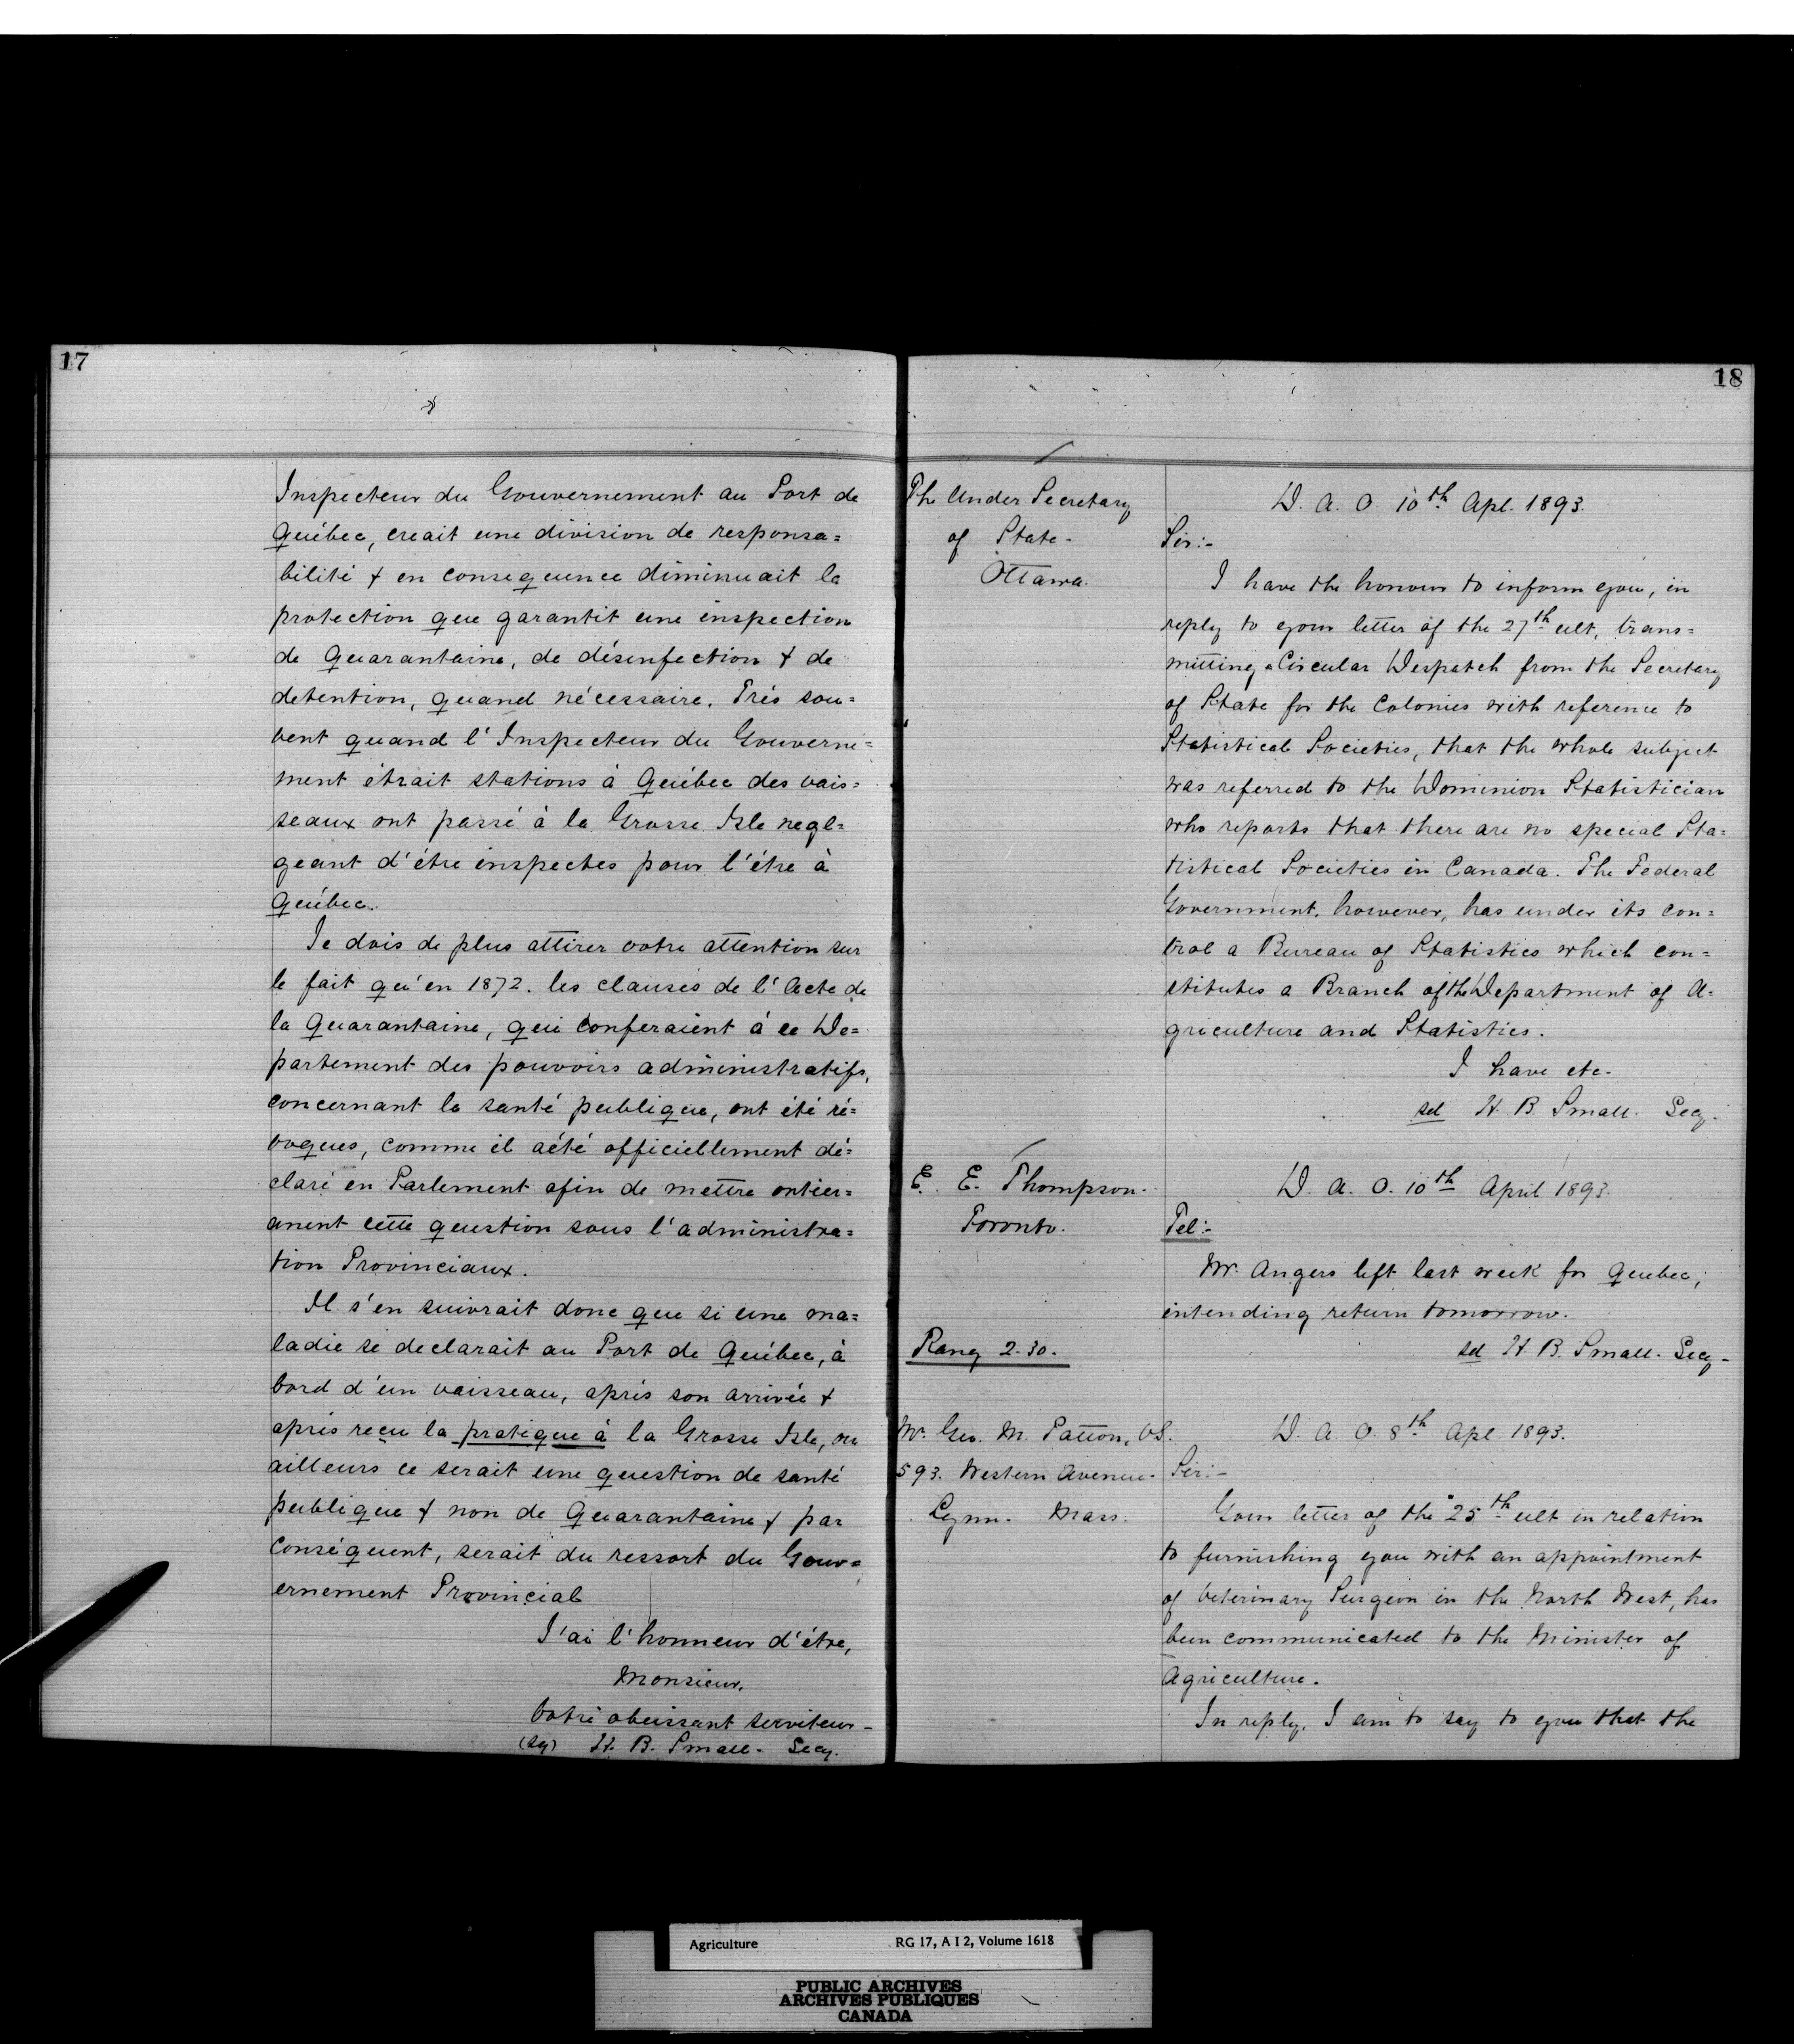 17
Inspecteur du Gouvernement au Port de
Québec, creait une division de responsa=
bilité & en consequence diminuait la
protection que garantit une inspection
de Quarantaine, de désinfection & de
detention, quand nécessaire. Trés sou=
vent quand l'Inspecteur du Gouverne=
ment étrait stations à Québec des vais=
seaux ont passé à la Grosse Isle negl=
geant d'étre inspectes pour l'étre à
Québec.
Je dois de plus attirer votre attention sur
le fait qu'en 1872. les clauses de l'Acte de
la Quarantaine, qui conferaient á ce De=
partement des pouvoirs administratifs,
concernant la santé publique, ont été ré=
voques, comme il aété officiellement dé=
claré en Parlement afin de mettre ontier=
anent cette question sous l'administra=
tion Provinciaux.
Il s'en suivrait donc que si une ma=
ladie se declarait au Port de Québec, à
bord d'un vaisseau, aprés son arrivée &
aprés reçu la pratique à la Grosse Isle, ou
ailleurs ce serait une question de santé
publique & non de Quarantaine & par
conséquent, serait du ressort du Gouv=
ernement Provincial
J'ai l'honneur d'étre,
Monsieur,
Votre obeissant serviteur-
(sg) H. B. Small. Secy.
18
The Under Secretary
of State-
Ottawa.
D. A. O. 10th Apl. 1893.
Sir:-
I have the honour to inform you, in
reply to your letter of the 27th ult, trans=
mitting a Circular Despatch from the Secretary
of State for the Colonies with reference to
Statistical Societies, that the whole subject
was referred to the Dominion Statistician
who reports that there are no special Sta=
tistical Societies in Canada. The Federal
Government, however, has under its con=
trol a Bureau of Statistics which con=
stitutes a Branch of the Department of A=
griculture and Statistics.
I have etc.
sd H. B. Small. Secy.
E. E. Thompson.
Toronto.
D. A. O. 10th April 1893.
Tel:-
Mr. Angers left last week for Quebec,
intending return tomorrow.
sd H. B. Small. Secy-
Rang 2.30.
Mr. Geo. M. Patton, V.S.
593. Western Avenue-
Lynn. Mass.
D. A. O. 8th Apl. 1893.
Sir:-
Your letter of the 25th ult in relation
to furnishing you with an appointment
of Veterinary Surgeon in the North West, has
been communicated to the Minister of
Agriculture.
In reply, I am to say to you that the
Agriculture RG 17, A I 2, Volume 1618
PUBLIC ARCHIVES
ARCHIVES PUBLIQUES
CANADA